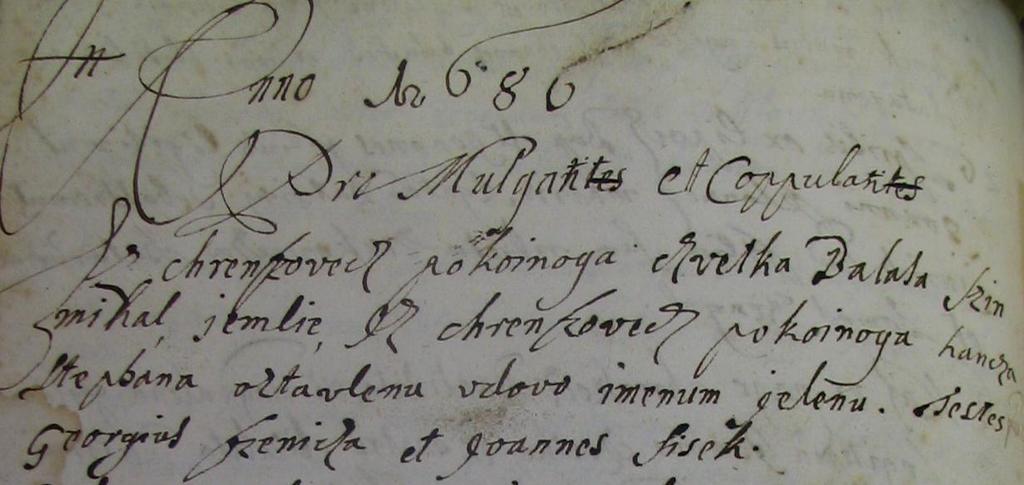 In Anno 1686
Pro Mulgantes et Coppulantes
Iz chrenzovecz pokoinoga czvetka Balasa szin
mihal, jemlie, Iz chrenzovecz pokoinoga hancza
Stephana oztavlenu vdovo imenum jelenu. Testes
Georgius szenicza et Joannes fisek.